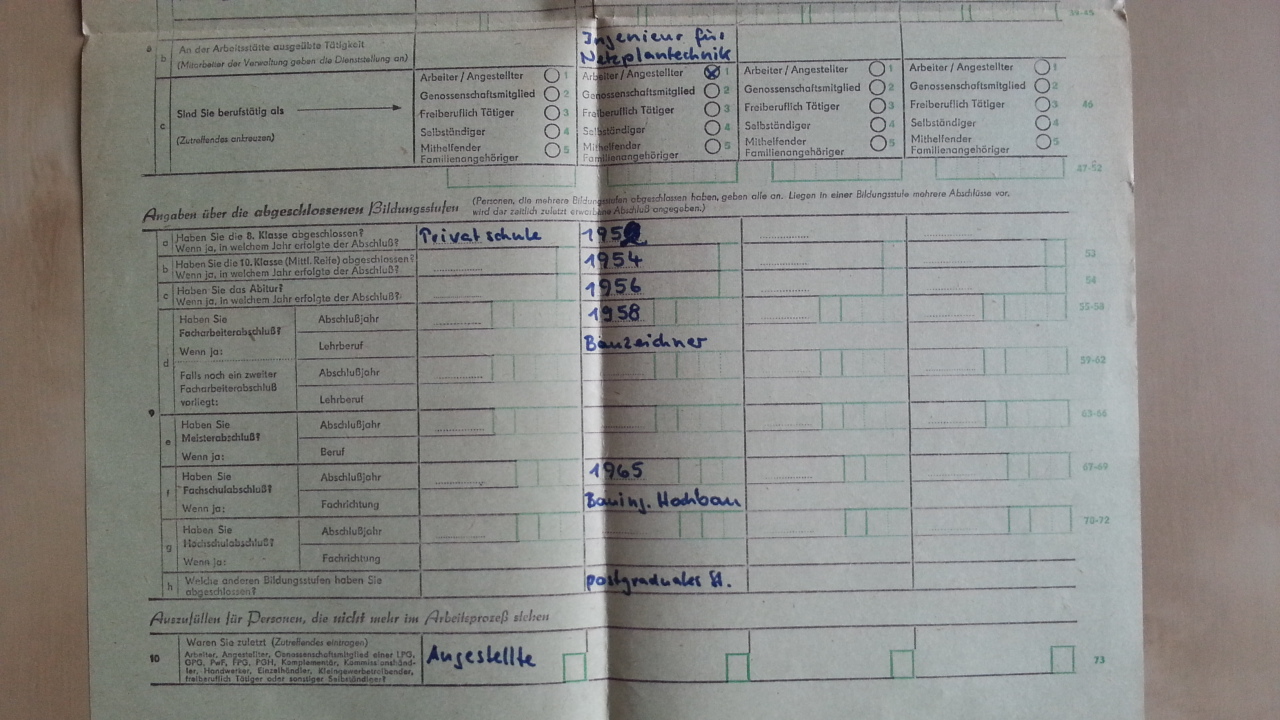 39-45
a
Ingenieur für
Netzplantechnik
b An der Arbeitsstätte ausgeübte Tätigkeit
(Mitarbeiter der Verwaltung geben die Dienststellung an)
c Sind Sie berufstätig als
(Zutreffendes ankreuzen)
Arbeiter / Angestellter 1 Arbeiter / Angestellter 1 Arbeiter / Angestellter 1 Arbeiter / Angestellter 1
Genossenschaftsmitglied 2 Genossenschaftsmitglied 2 Genossenschaftsmitglied 2 Genossenschaftsmitglied 2
Freiberuflich Tätiger 3 Freiberuflich Tätiger 3 Freiberuflich Tätiger 3 Freiberuflich Tätiger 3 46
Selbständiger 4 Selbständiger 4 Selbständiger 4 Selbständiger 4
Mithelfender 5 Mithelfender 5 Mithelfender 5 Mithelfender 5
Familienangehöriger Familienangehöriger Familienangehöriger Familienangehöriger
47-52
Angaben über die abgeschlossenen Bildungsstufen
(Personen, die mehrere Bildungsstufen abgeschlossen haben, geben alle an. Liegen in einer Bildungsstufe mehrere Abschlüsse vor,
wird der zeitlich zuletzt erworbene Abschluß angegeben.)
9
a Haben Sie die 8. Klasse abgeschlossen?
Wenn ja, in welchem Jahr erfolgte der Abschluß? Privatschule 1952
b Haben Sie die 10. Klasse (Mittl. Reife) abgeschlossen?
Wenn ja, in welchem Jahr erfolgte der Abschluß? 1954 53
c Haben Sie das Abitur?
Wenn ja, in welchem Jahr erfolgte der Abschluß? 1956 54
d Haben Sie
Facharbeiterabschluß?
Wenn ja:
Abschlußjahr 1958 55-58
Lehrberuf Bauzeichner
Falls noch ein zweiter
Facharbeiterabschluß
vorliegt:
Abschlußjahr 59-62
Lehrberuf
e Haben Sie
Meisterabschluß?
Wenn ja:
Abschlußjahr 63-66
Beruf
f Haben Sie
Fachschulabschluß?
Wenn ja:
Abschlußjahr 1965 67-69
Fachrichtung Bauing. Hochbau
g Haben Sie
Hochschulabschluß?
Wenn ja:
Abschlußjahr 70-72
Fachrichtung
h Welche anderen Bildungsstufen haben Sie
abgeschlossen? postgraduales St.
Auszufüllen für Personen, die nicht mehr im Arbeitsprozeß stehen
10 Waren Sie zuletzt (Zutreffendes eintragen)
Arbeiter, Angestellter, Genossenschaftsmitglied einer LPG,
GPG, PwF, FPG, PGH, Komplementär, Kommissionshänd-
ler, Handwerker, Einzelhändler, Kleingewerbetreibender,
freiberuflich Tätiger oder sonstiger Selbständiger?
Angestellte 73